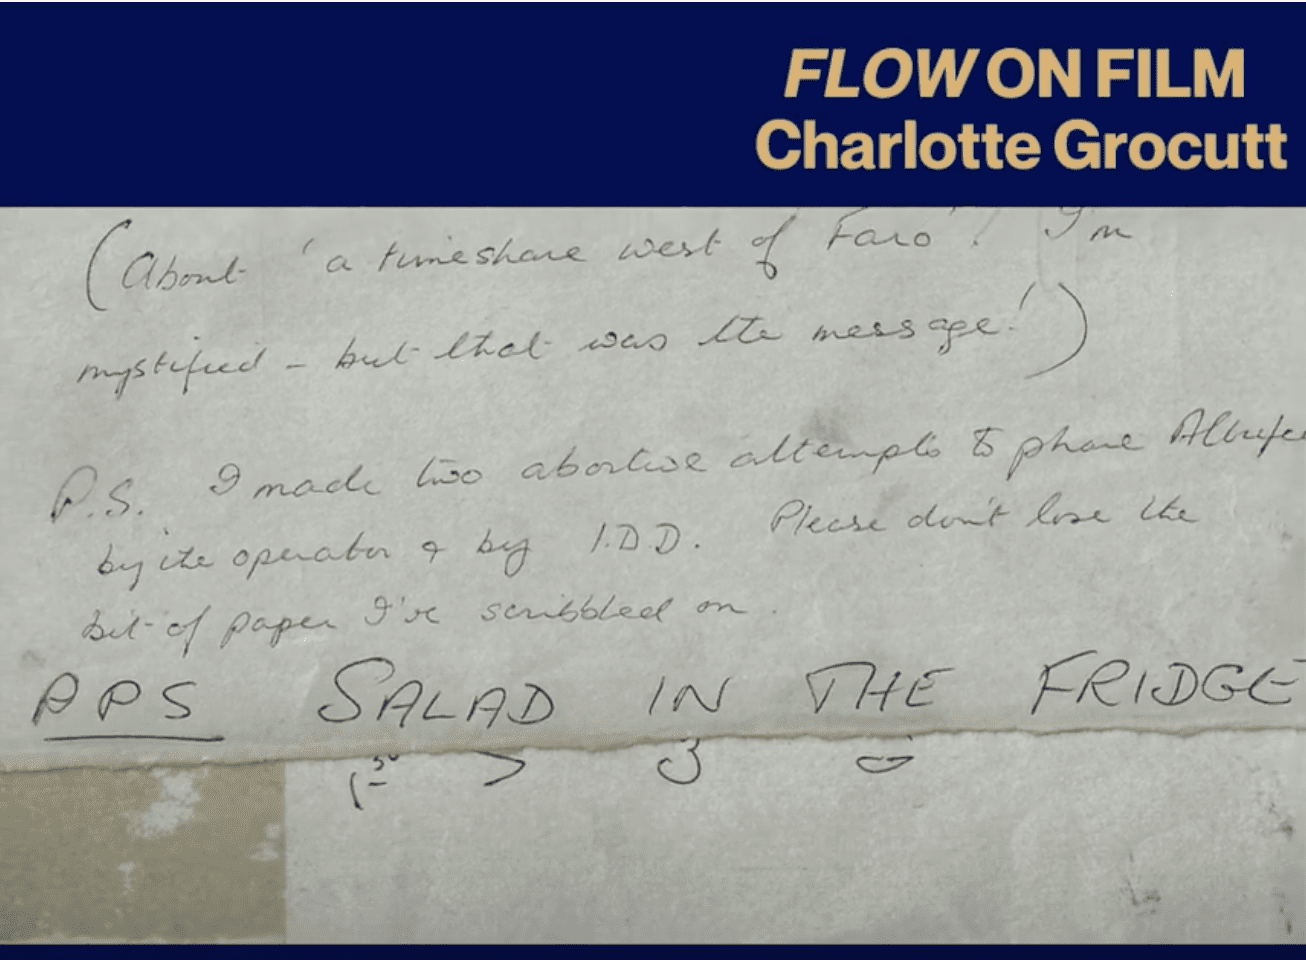 FLOW ON FILM
Charlotte Grocutt
(About 'a timeshare west of Faro'! I'm
mystified - but that was the message!)
P.S. I made two abortive attempts to phone Albufei
by the operator & by I.D.D. Please don't lose the
bit of paper I've scribbled on.
PPS SALAD IN THE FRIDGE